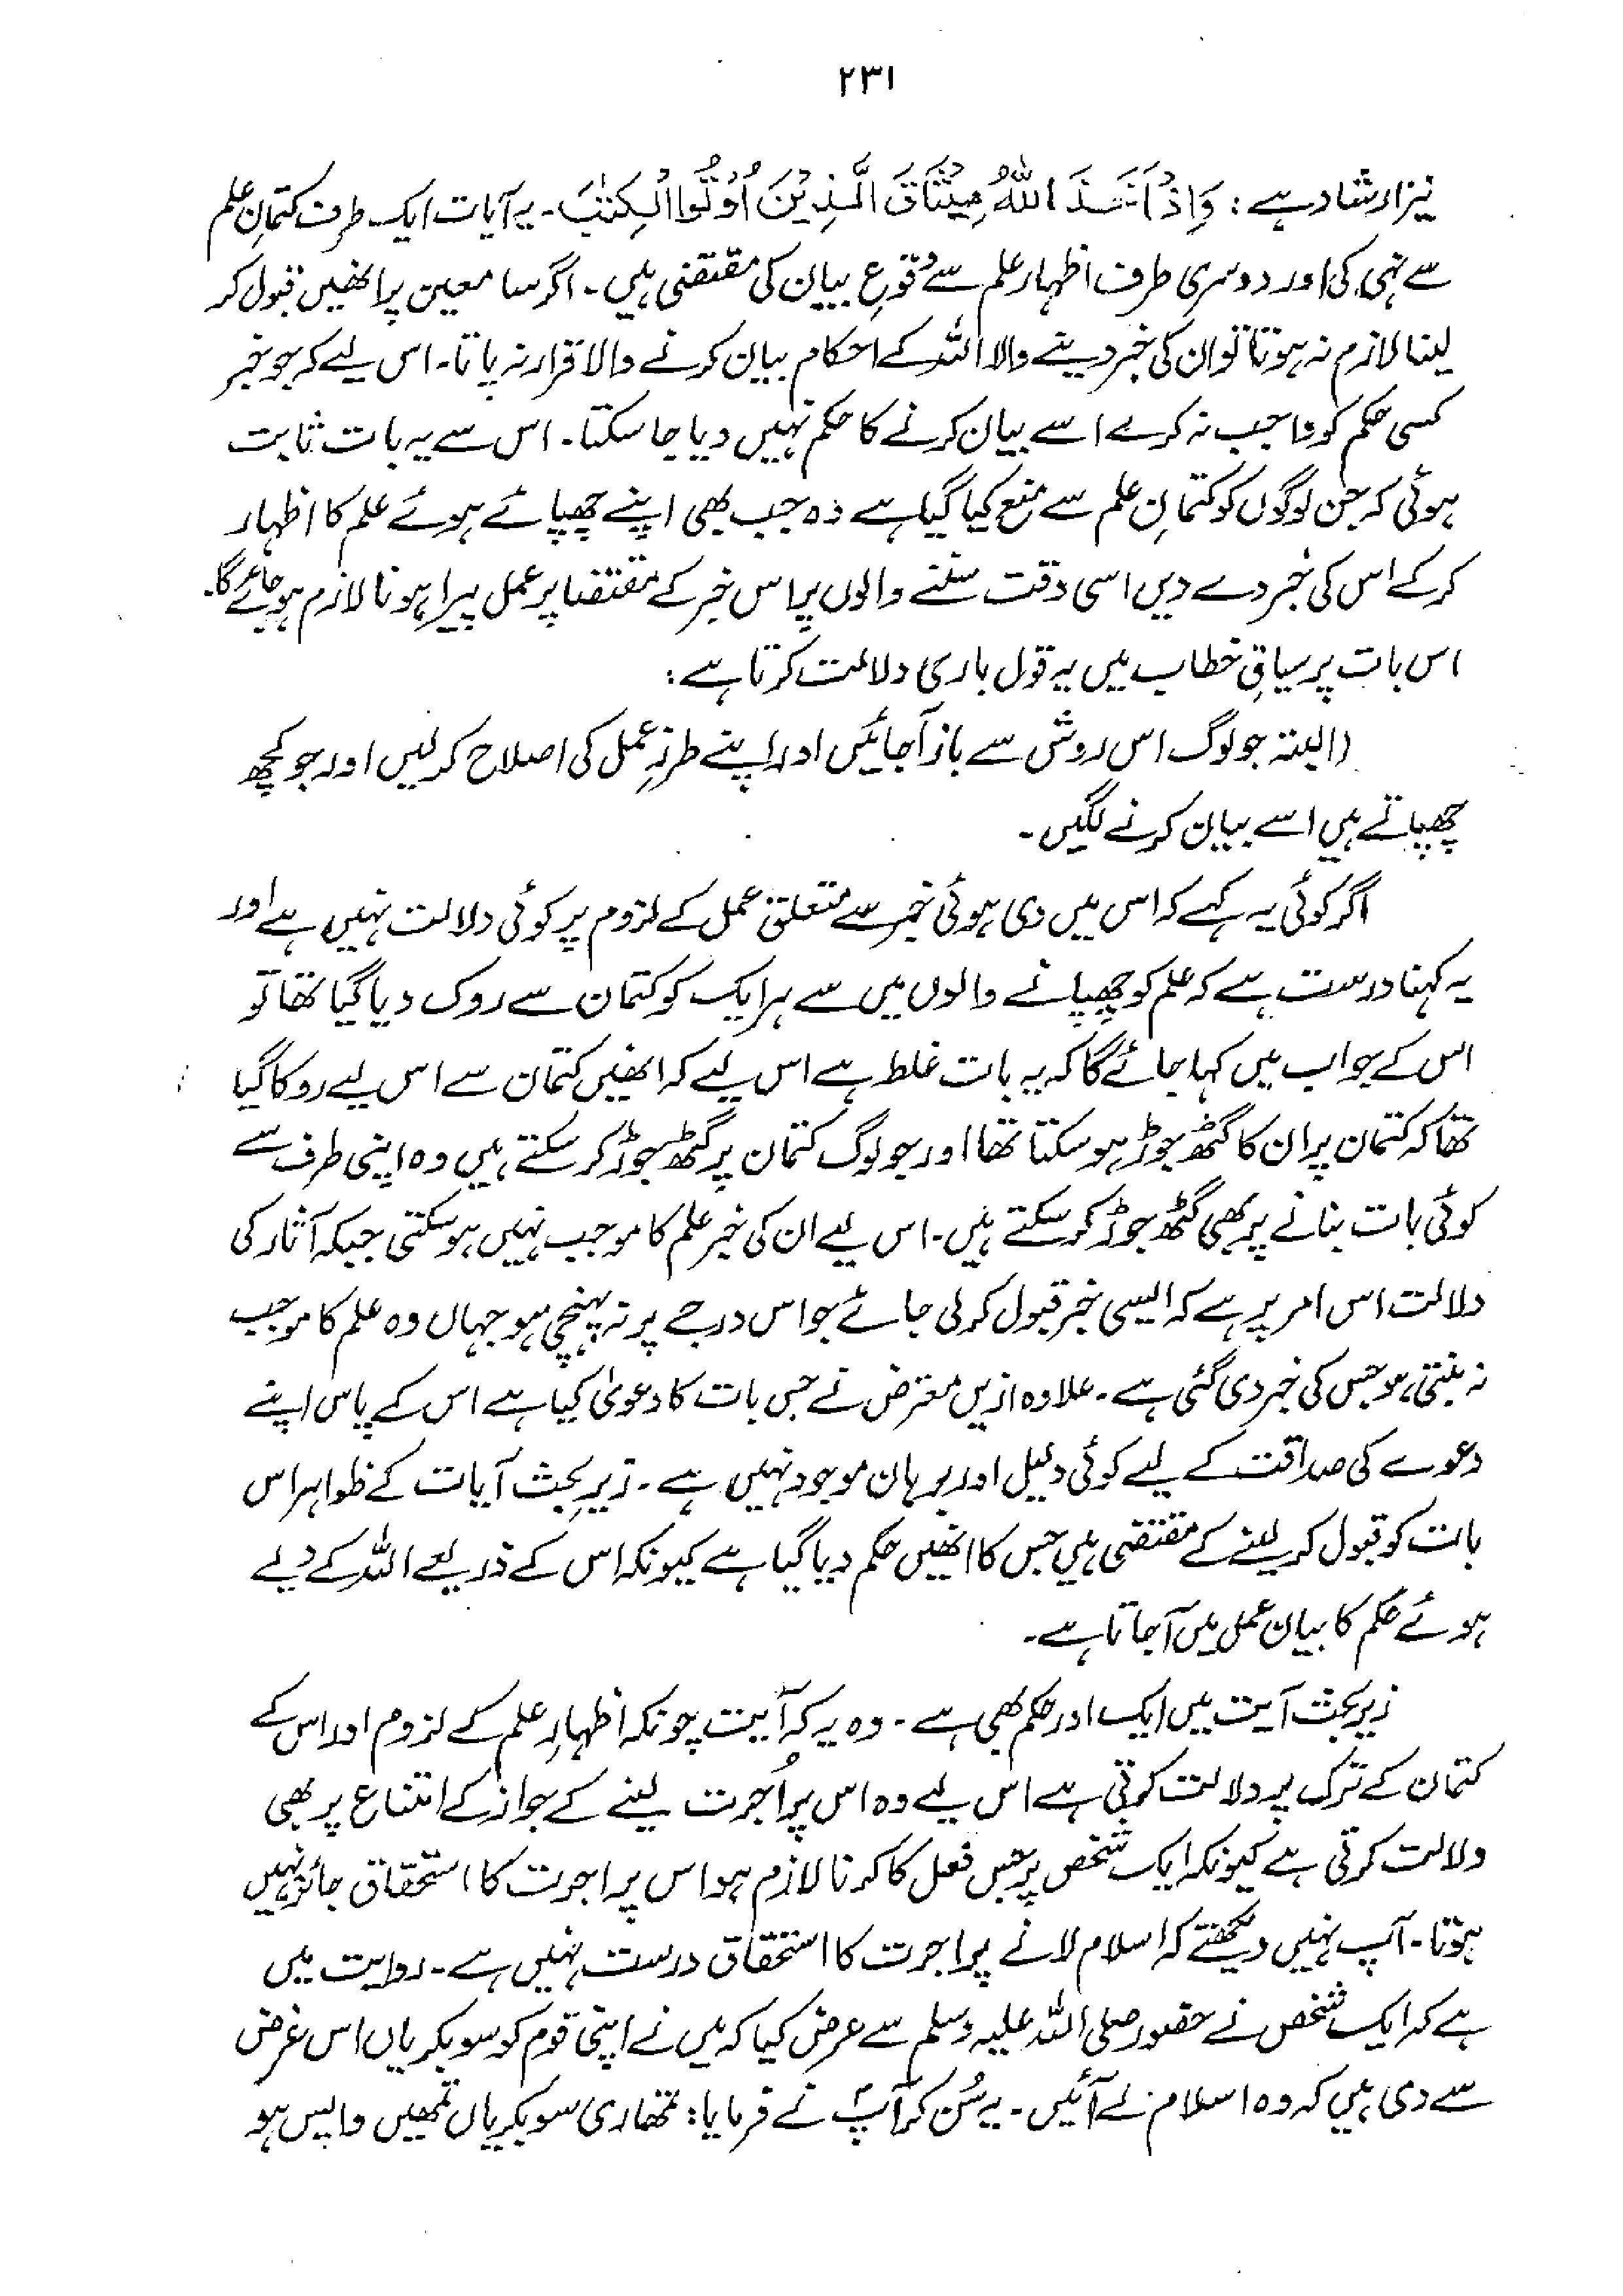 ۲۳۱
نیز ارشاد ہے: وَاِذْ اَخَذَ اللّٰهُ مِيْثَاقَ الَّذِيْنَ اُوْتُوا الْكِتٰبَ۔ یہ آیات ایک طرف کتمانِ علم
سے نہی کی اور دوسری طرف اظہار علم سے وقوعِ بیان کی مقتضی ہیں۔ اگر سامعین پر انھیں قبول کر
لینا لازم نہ ہوتا تو ان کی خبر دینے والا اللہ کے احکام بیان کرنے والا قرار نہ پاتا۔ اس لیے کہ جو خبر
کسی حکم کو واجب نہ کرے اسے بیان کرنے کا حکم نہیں دیا جا سکتا۔ اس سے یہ بات ثابت
ہوئی کہ جن لوگوں کو کتمانِ علم سے منع کیا گیا ہے وہ جب بھی اپنے چھپائے ہوئے علم کا اظہار
کر کے اس کی خبر دے دیں اسی وقت سننے والوں پر اس خبر کے مقتضا پر عمل پیرا ہونا لازم ہو جائے گا۔
اس بات پر سیاقِ خطاب میں یہ قول باری دلالت کرتا ہے:
(البتہ جو لوگ اس روش سے باز آجائیں اور اپنے طرزِ عمل کی اصلاح کر لیں اور جو کچھ
چھپاتے ہیں اسے بیان کرنے لگیں۔
اگر کوئی یہ کہے کہ اس میں دی ہوئی خبر سے متعلق عمل کے لزوم پر کوئی دلالت نہیں ہے اور
یہ کہنا درست ہے کہ علم کو چھپانے والوں میں سے ہر ایک کو کتمان سے روک دیا گیا تھا تو
اس کے جواب میں کہا جائے گا کہ یہ بات غلط ہے اس لیے کہ انھیں کتمان سے اس لیے روکا گیا
تھا کہ کتمان پر ان کا گٹھ جوڑ ہو سکتا تھا اور جو لوگ کتمان پر گٹھ جوڑ کر سکتے ہیں وہ اپنی طرف سے
کوئی بات بنانے پر بھی گٹھ جوڑ کر سکتے ہیں۔ اس لیے ان کی خبر علم کا موجب نہیں ہو سکتی جبکہ آثار کی
دلالت اس امر پر ہے کہ ایسی خبر قبول کر لی جائے جو اس درجے پر نہ پہنچی ہو جہاں وہ علم کا موجب
نہ بنتی ہو جس کی خبر دی گئی ہے۔ علاوہ ازیں معترض نے جس بات کا دعویٰ کیا ہے اس کے پاس اپنے
دعوے کی صداقت کے لیے کوئی دلیل اور برہان موجود نہیں ہے۔ زیرِ بحث آیات کے ظواہر اس
بات کو قبول کر لینے کے مقتضی ہیں جس کا انھیں حکم دیا گیا ہے کیونکہ اس کے ذریعے اللہ کے دیے
ہوئے حکم کا بیان عمل میں آجاتا ہے۔
زیر بحث آیت میں ایک اور حکم بھی ہے۔ وہ یہ کہ آیت چونکہ اظہارِ علم کے لزوم اور اس کے
کتمان کے ترک پر دلالت کرتی ہے اس لیے وہ اس پر اُجرت لینے کے جواز کے امتناع پر بھی
دلالت کرتی ہے کیونکہ ایک شخص پر جس فعل کا کرنا لازم ہو اس پر اجرت کا استحقاق جائز نہیں
ہوتا۔ آپ نہیں دیکھتے کہ اسلام لانے پر اجرت کا استحقاق درست نہیں ہے۔ روایت میں
ہے کہ ایک شخص نے حضور صلی اللہ علیہ وسلم سے عرض کیا کہ میں نے اپنی قوم کو سو بکریاں اس غرض
سے دی ہیں کہ وہ اسلام لے آئیں۔ یہ سُن کر آپؐ نے فرمایا: تمھاری سو بکریاں تمھیں واپس ہو